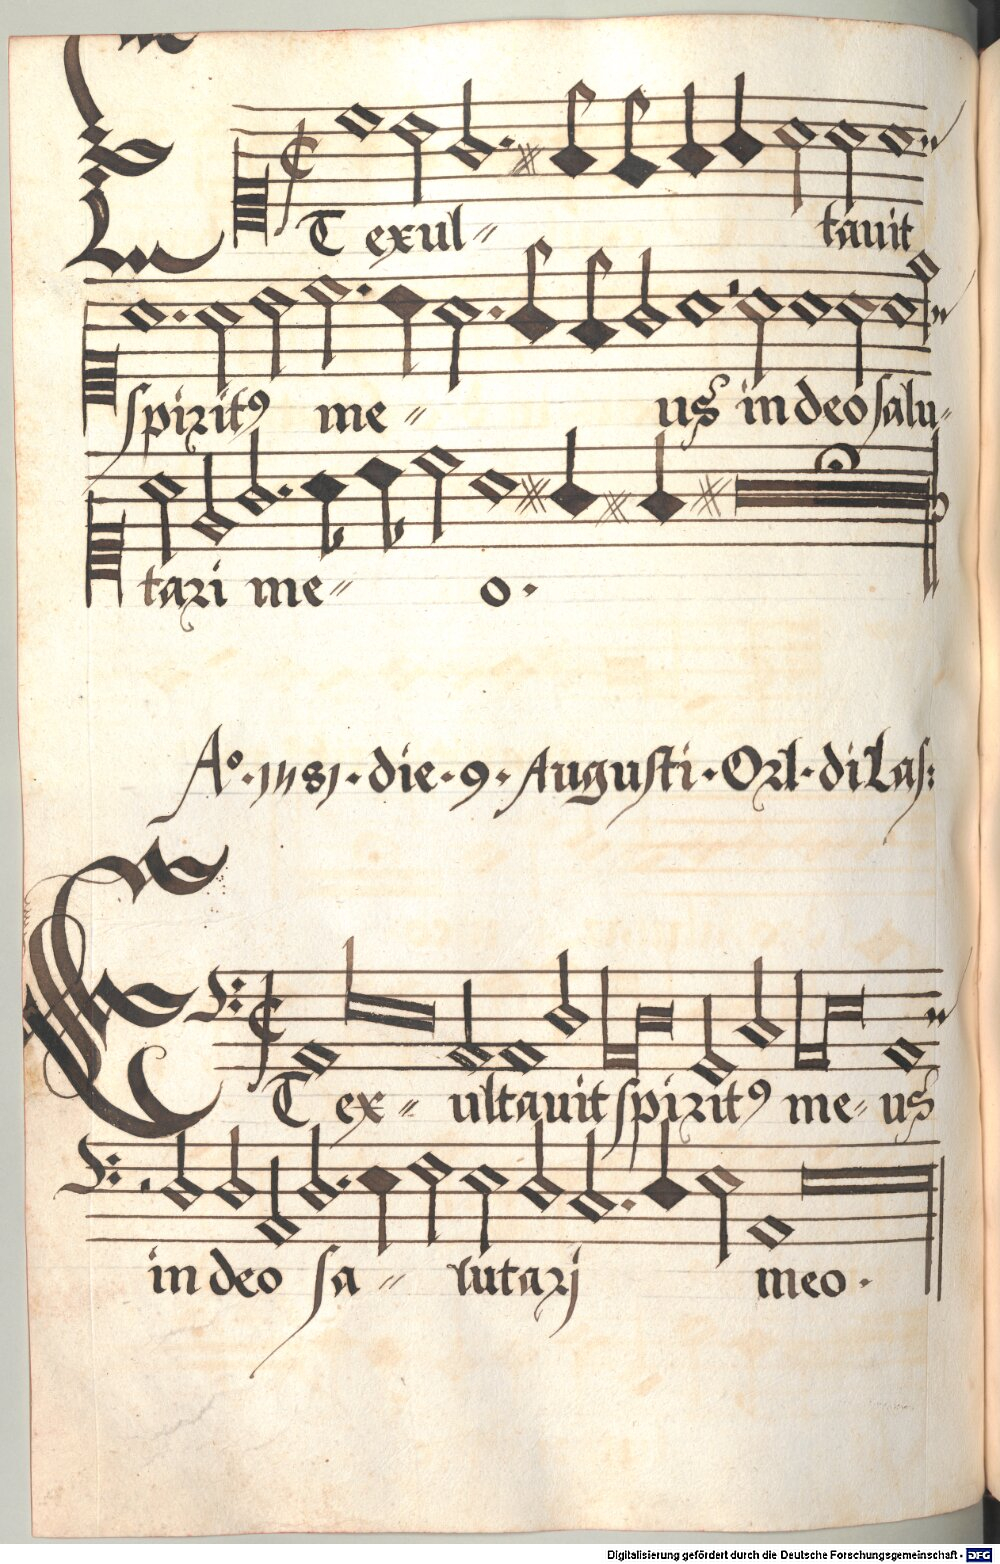 ET exul- tavit
spiritꝰ me- us in deo salu-
tari me- o.
Aº. 1581. die. 9. Augusti. Orl. di Las:
ET ex- ultavit spiritꝰ me- us
in deo sa- lutarj meo.
Digitalisierung gefördert durch die Deutsche Forschungsgemeinschaft - DFG